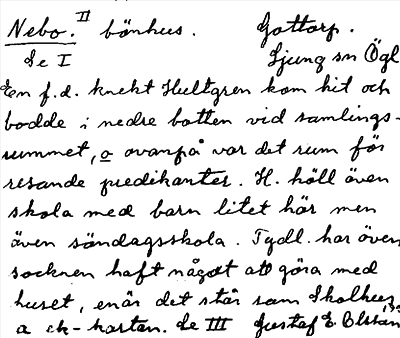 Nebo. II bönhus. Gottorp.
Se I Ljung sn Ögl
En f.d. knekt Hultgren kom hit och
bodde i nedre botten vid samlings-
rummet, o ovanpå var det rum för
resande predikanter. H. höll även
skola med barn litet här men
även söndagsskola. Tydl. har även
socknen haft något att göra med
huset, enär det står som Skolhus
a ek-kartan. Se III Gustaf E